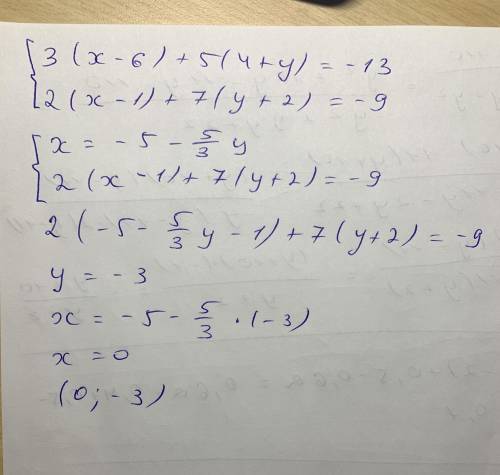 3 (x - 6) + 5 (4 + y) = -13
2 (x - 1) + 7 (y + 2) = -9
x = -5 - 5/3 y
2 (x - 1) + 7 (y + 2) = -9
2 (-5 - 5/3 y - 1) + 7 (y + 2) = -9
y = -3
x = -5 - 5/3 · (-3)
x = 0
(0; -3)